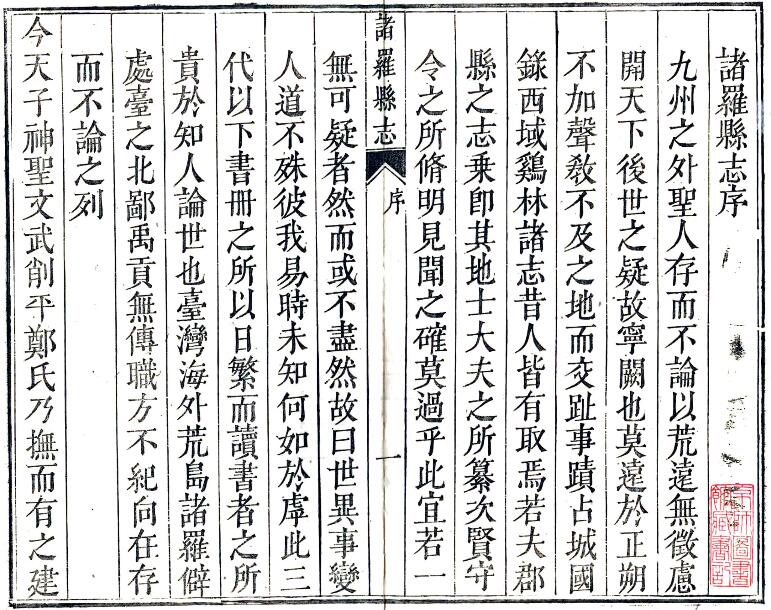 諸羅縣志序
九州之外聖人存而不論以荒遠無徵慮
開天下後世之疑故寧闕也莫遠於正朔
不加聲敎不及之地而交趾事蹟占城國
錄西域鷄林諸志昔人皆有取焉若夫郡
縣之志乘卽其地士大夫之所纂次賢守
令之所脩明見聞之確莫過乎此宜若一
諸羅縣志
序
一
無可疑者然而或不盡然故曰世異事變
人道不殊彼我易時未知何如於虖此三
代以下書册之所以日繁而讀書者之所
貴於知人論世也臺灣海外荒島諸羅僻
處臺之北鄙禹貢無傳職方不紀向在存
而不論之列
今天子神聖文武削平鄭氏乃撫而有之建